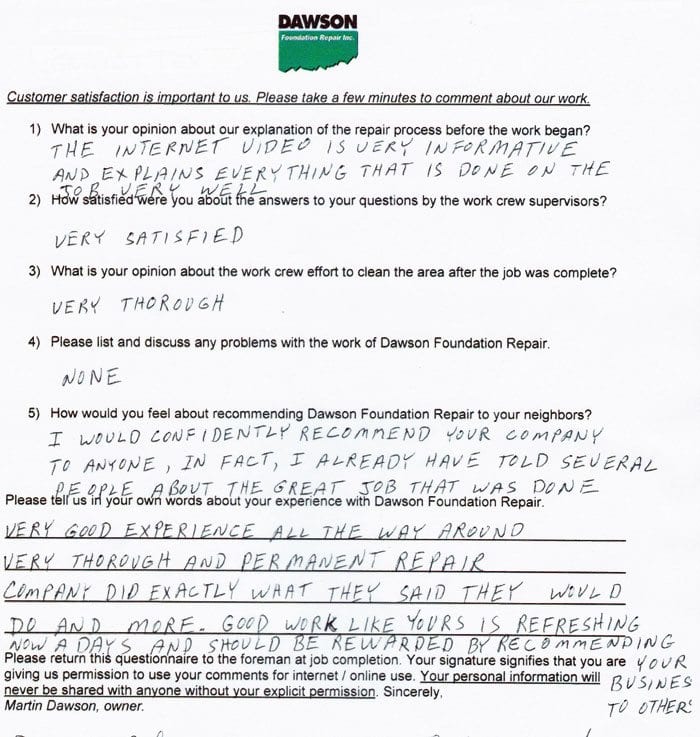 DAWSON
Foundation Repair Inc.
Customer satisfaction is important to us. Please take a few minutes to comment about our work.
1) What is your opinion about our explanation of the repair process before the work began?
THE INTERNET VIDEO IS VERY INFORMATIVE
AND EXPLAINS EVERYTHING THAT IS DONE ON THE
JOB VERY WELL
2) How satisfied were you about the answers to your questions by the work crew supervisors?
VERY SATISFIED
3) What is your opinion about the work crew effort to clean the area after the job was complete?
VERY THOROUGH
4) Please list and discuss any problems with the work of Dawson Foundation Repair.
NONE
5) How would you feel about recommending Dawson Foundation Repair to your neighbors?
I WOULD CONFIDENTLY RECOMMEND YOUR COMPANY
TO ANYONE, IN FACT, I ALREADY HAVE TOLD SEVERAL
PEOPLE ABOUT THE GREAT JOB THAT WAS DONE
Please tell us in your own words about your experience with Dawson Foundation Repair.
VERY GOOD EXPERIENCE ALL THE WAY AROUND
VERY THOROUGH AND PERMANENT REPAIR
COMPANY DID EXACTLY WHAT THEY SAID THEY WOULD
DO AND MORE. GOOD WORK LIKE YOURS IS REFRESHING
NOW A DAYS AND SHOULD BE REWARDED BY RECOMMENDING
YOUR
BUSINES
TO OTHERS
Please return this questionnaire to the foreman at job completion. Your signature signifies that you are
giving us permission to use your comments for internet / online use. Your personal information will
never be shared with anyone without your explicit permission. Sincerely,
Martin Dawson, owner.